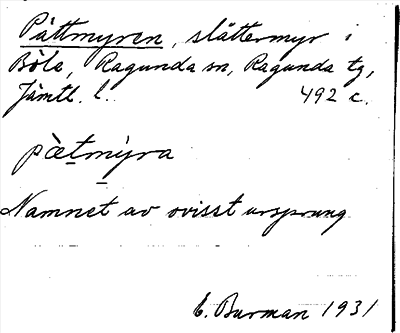 Pättmyren, slåttermyr i
Böle, Ragunda sn, Ragunda tg,
Jämtl. l. 492 c.
pæ̀t̠mýra
Namnet av ovisst ursprung
E. Burman 1931